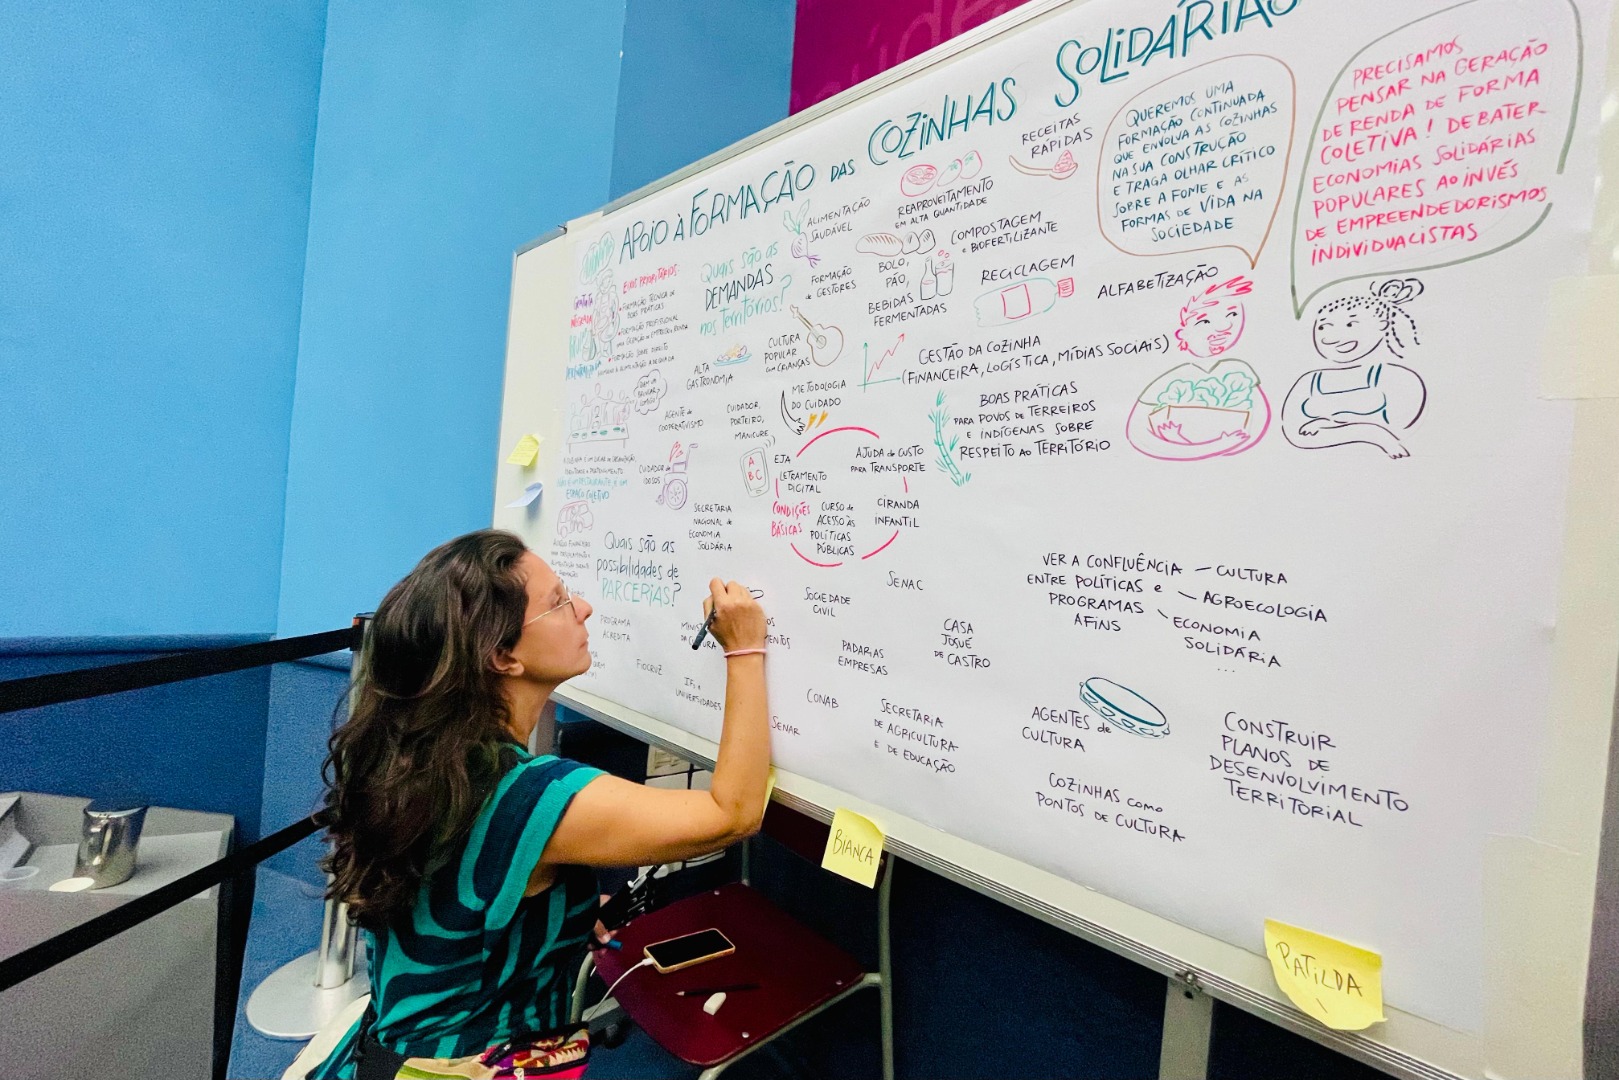 APOIO À FORMAÇÃO DAS COZINHAS SOLIDÁRIAS
EIXOS PRIORITÁRIOS:
FORMAÇÃO TÉCNICA DE
BOAS PRÁTICAS
FORMAÇÃO PROFISSIONAL
GRATUITA
INTEGRADA
ESPAÇO COLETIVO
Quais são as
DEMANDAS
nos territórios?
ALIMENTAÇÃO
SAUDÁVEL
REAPROVEITAMENTO
EM ALTA QUANTIDADE
RECEITAS
RÁPIDAS
FORMAÇÃO
de GESTORES
BOLO,
PÃO,
BEBIDAS
FERMENTADAS
COMPOSTAGEM
e BIOFERTILIZANTE
RECICLAGEM
ALFABETIZAÇÃO
CULTURA
POPULAR
com CRIANÇAS
ALTA
GASTRONOMIA
GESTÃO DA COZINHA
(FINANCEIRA, LOGÍSTICA, MÍDIAS SOCIAIS)
METODOLOGIA
DO CUIDADO
AGENTE de
COOPERATIVISMO
CUIDADOR,
PORTEIRO,
MANICURE
BOAS PRÁTICAS
PARA POVOS DE TERREIROS
E INDÍGENAS SOBRE
RESPEITO AO TERRITÓRIO
CUIDADOR de
IDOSOS
A
B
C
EJA
LETRAMENTO
DIGITAL
AJUDA de CUSTO
PARA TRANSPORTE
CONDIÇÕES
BÁSICAS
CURSO de
ACESSO ÀS
POLÍTICAS
PÚBLICAS
CIRANDA
INFANTIL
SECRETARIA
NACIONAL de
ECONOMIA
SOLIDÁRIA
QUEREMOS UMA
FORMAÇÃO CONTINUADA
QUE ENVOLVA AS COZINHAS
NA SUA CONSTRUÇÃO
E TRAGA OLHAR CRÍTICO
SOBRE A FOME E AS
FORMAS DE VIDA NA
SOCIEDADE
PRECISAMOS
PENSAR NA GERAÇÃO
DE RENDA DE FORMA
COLETIVA! DEBATER
ECONOMIAS SOLIDÁRIAS
POPULARES AO INVÉS
DE EMPREENDEDORISMOS
INDIVIDUALISTAS
Quais são as
possibilidades de
PARCERIAS?
PROGRAMA
ACREDITA
FIOCRUZ
IFs e
UNIVERSIDADES
SENAR
SOCIEDADE
CIVIL
SENAC
PADARIAS
EMPRESAS
CASA
JOSUÉ
DE CASTRO
CONAB
SECRETARIA
DE AGRICULTURA
E DE EDUCAÇÃO
VER A CONFLUÊNCIA
ENTRE POLÍTICAS e
PROGRAMAS
AFINS
– CULTURA
– AGROECOLOGIA
– ECONOMIA
SOLIDÁRIA
...
AGENTES de
CULTURA
COZINHAS como
PONTOS DE CULTURA
CONSTRUIR
PLANOS DE
DESENVOLVIMENTO
TERRITORIAL
BIANCA
PATILDA